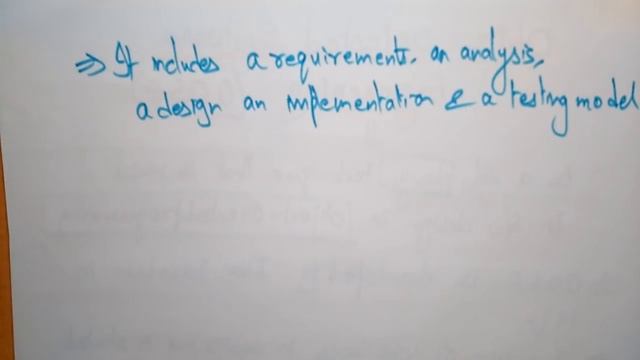 ⇒ It includes a requirements, an analysis,
a design an implementation & a testing model